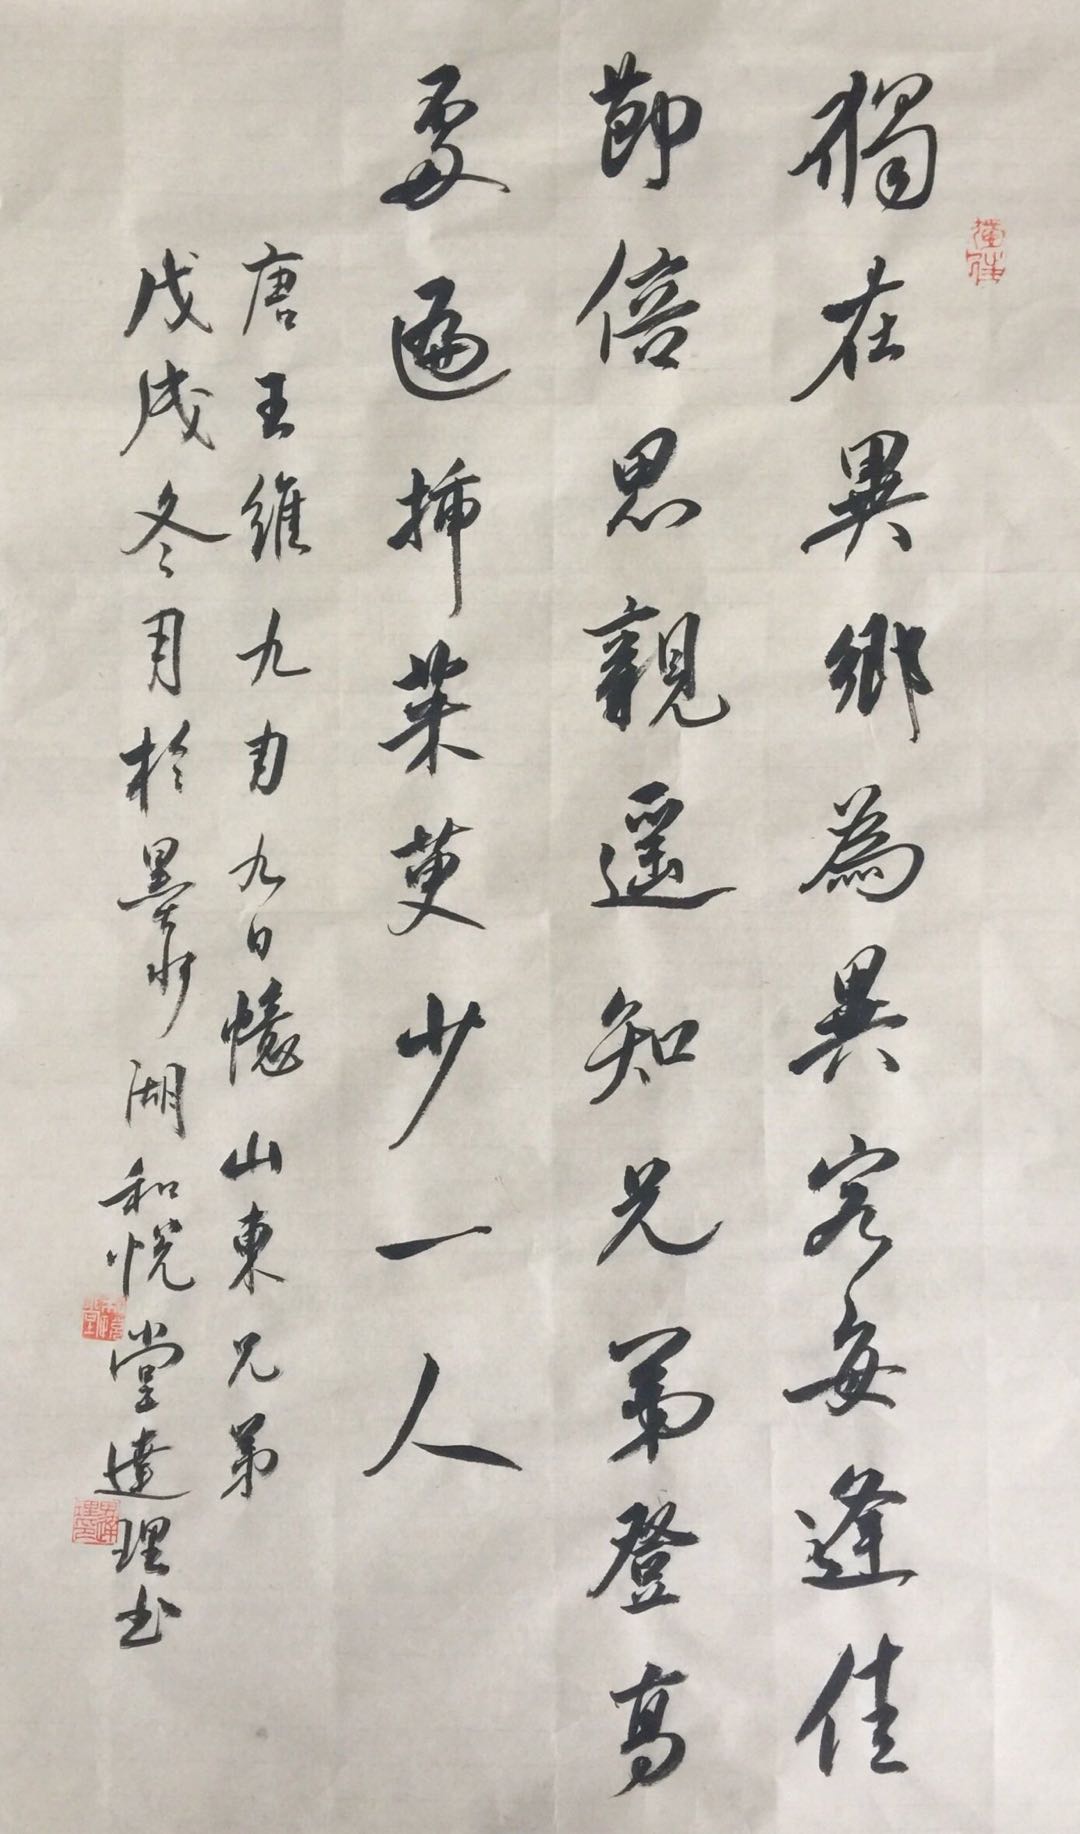 獨在異鄉為異客每逢佳
節倍思親遥知兄弟登高
處遍插茱萸少一人
唐王維九月九日憶山東兄弟
戊戌冬月於墨水湖和悅堂達理书